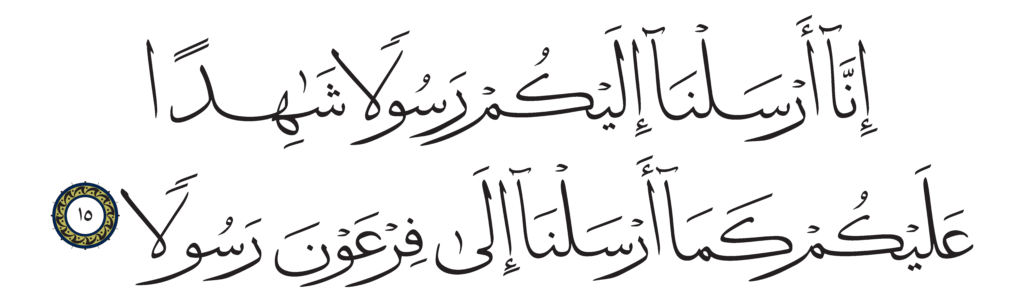 إِنَّآ أَرۡسَلۡنَآ إِلَيۡكُمۡ رَسُولٗا شَٰهِدًا
عَلَيۡكُمۡ كَمَآ أَرۡسَلۡنَآ إِلَىٰ فِرۡعَوۡنَ رَسُولٗا ١٥